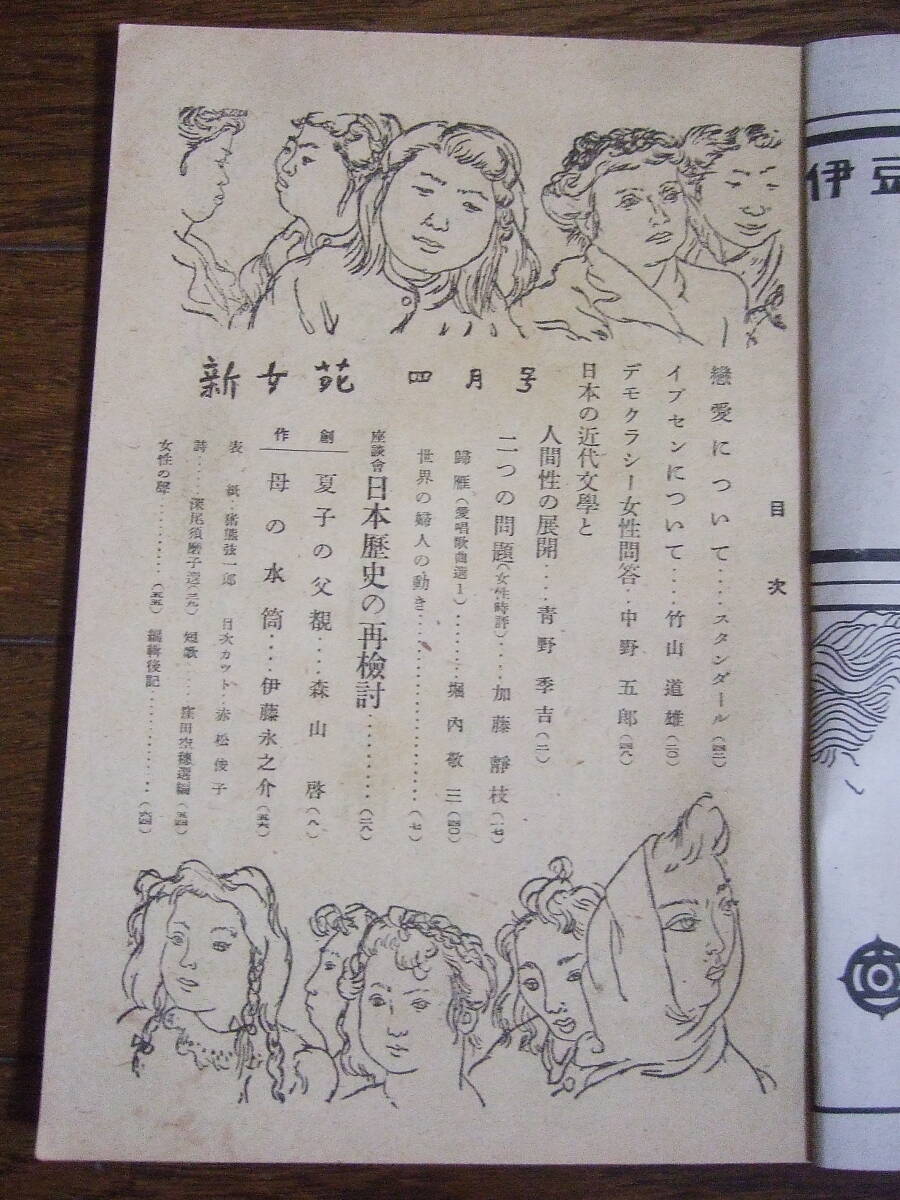 新女苑 四月号
目次
戀愛について‥‥スタンダール(四二)
イブセンについて‥‥竹山道雄(二〇)
デモクラシー女性問答‥‥中野五郎(四八)
日本の近代文學と
人間性の展開‥‥青野季吉(二)
二つの問題(女性時評)‥‥加藤靜枝(一七)
歸雁(愛唱歌曲選1)‥‥‥‥堀内敬三(四〇)
世界の婦人の動き‥‥‥‥‥‥‥‥(七)
座談會 日本歷史の再檢討‥‥‥‥‥(二八)
創作
夏子の父親‥‥森山啓(八)
母の水筒‥‥伊藤永之介(五六)
表紙‥猪熊弦一郎 目次カット‥赤松俊子
詩‥‥深尾須磨子選(三九) 短歌‥‥窪田空穗選編(五四)
女性の聲‥‥‥‥‥(五五) 編輯後記‥‥‥‥‥‥‥(六四)
伊豆